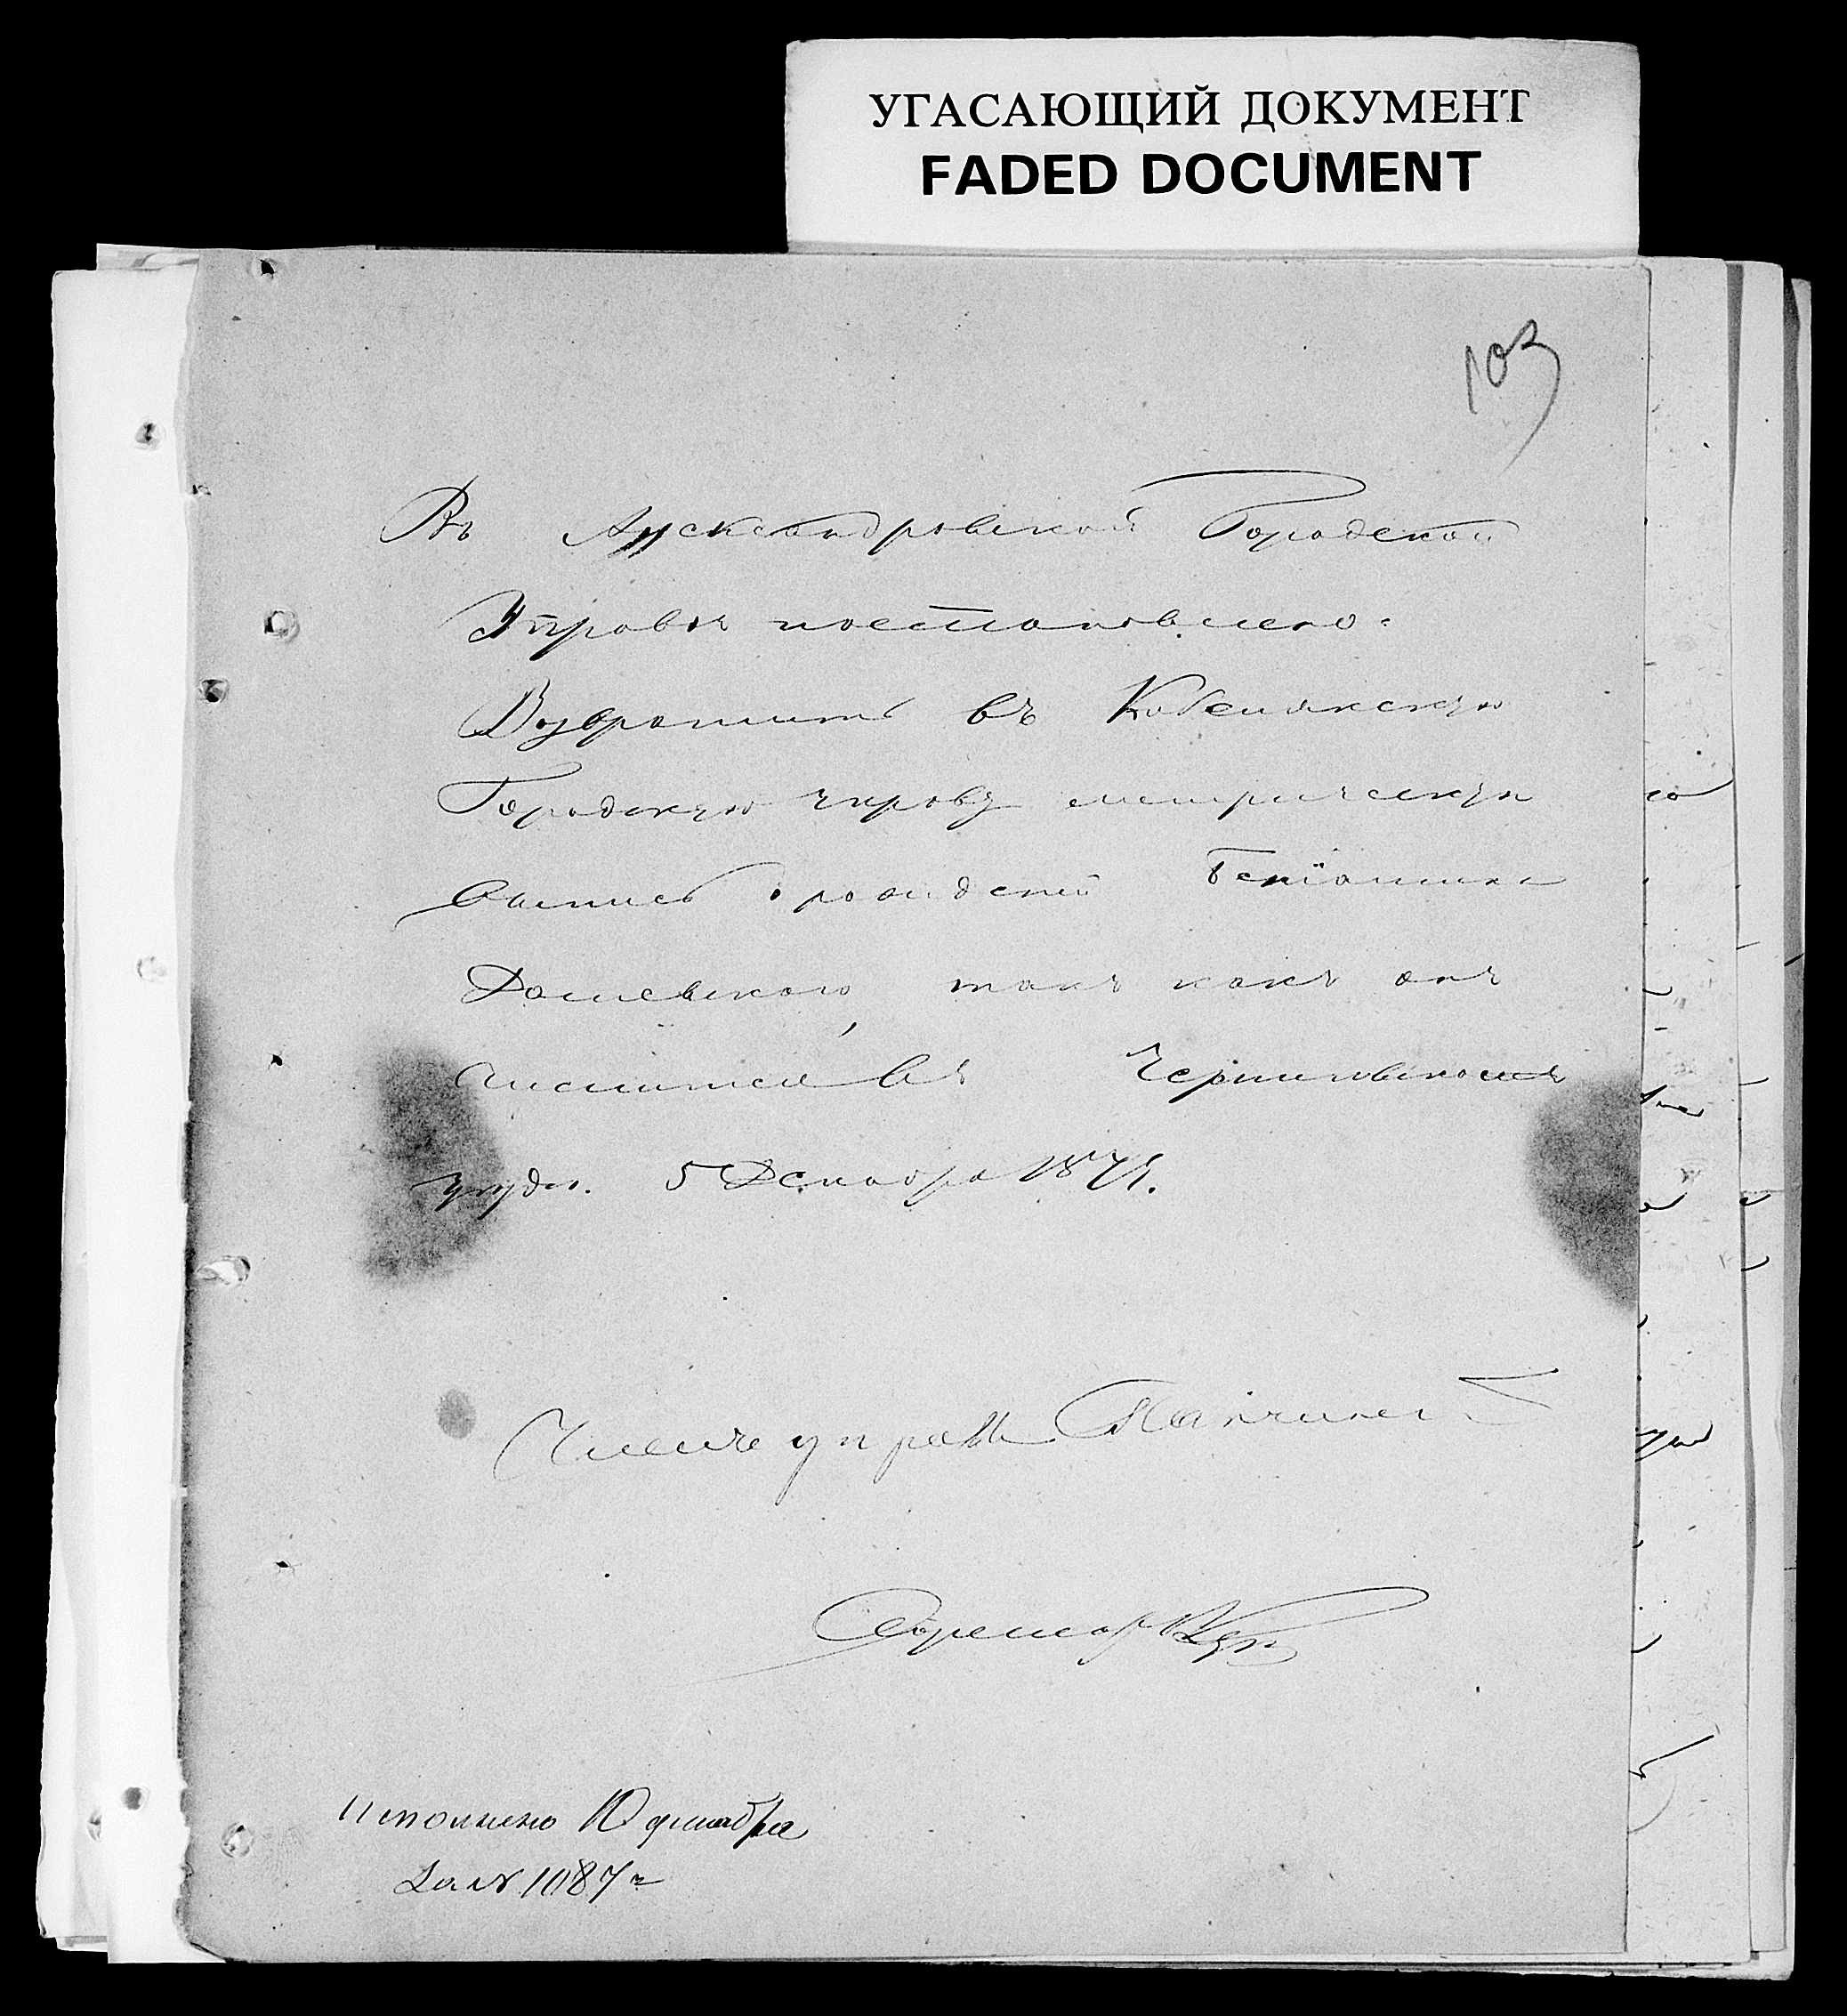 УГАСАЮЩИЙ ДОКУМЕНТ
FADED DOCUMENT
103
Въ Александровской Городской
Управѣ постановлено:
Возвратить въ Кобелякскую
Городскую управу метрическую
выпись о рождении
Дашевского такъ какъ онъ
числится въ Черниговскомъ
5 Декабря 187
Членъ управы
Исполнено 10 декабря
за № 1087